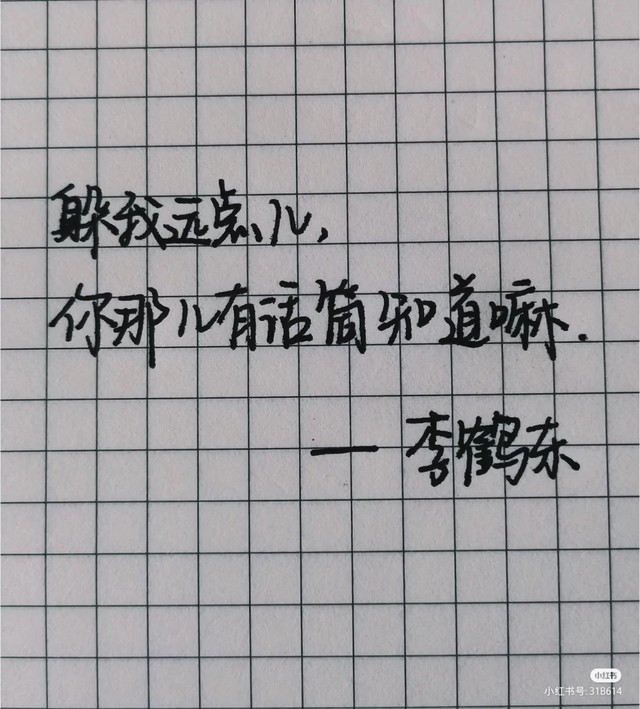 躲我远点儿，
你那儿有话筒知道嘛.
— 李鹤东
小红书
小红书号: 31B614